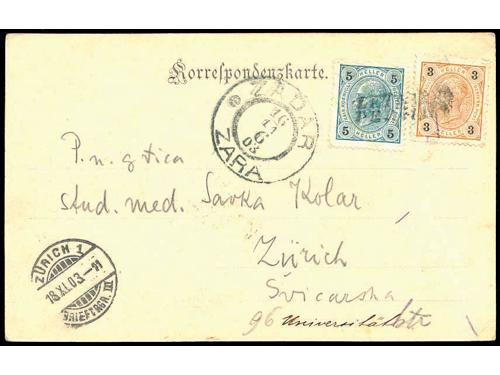 Korrespondenzkarte.
5 HELLER 5
5 5
3 HELLER 3
3 3
ZADAR
16
03
ZARA
P. n. gtica
stud. med. Savka Kolar
Zürich
Švicarska
96 Universitätstr
ZÜRICH 1
18.XI.03.–11
BRIEFTRGR. III